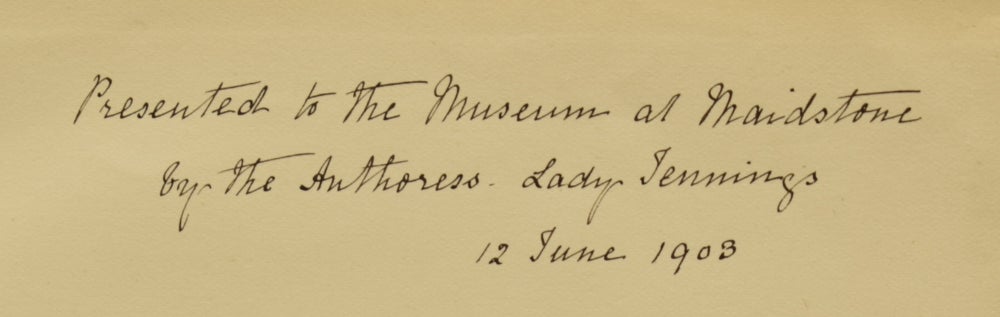 Presented to the Museum at Maidstone
by the Authoress. Lady Jennings
12 June 1903